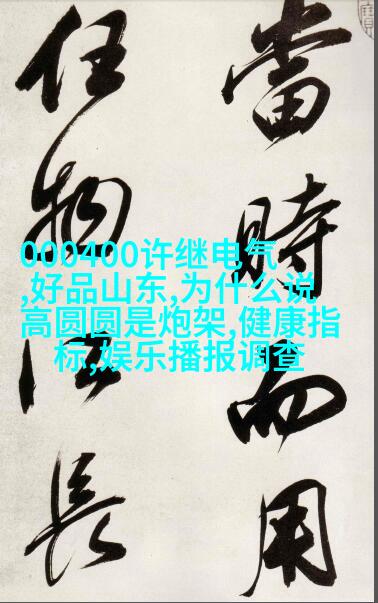 當時而用
任物長
000400许继电气
,好品山东,为什么说
高圆圆是炮架,健康指
标,娱乐播报调查